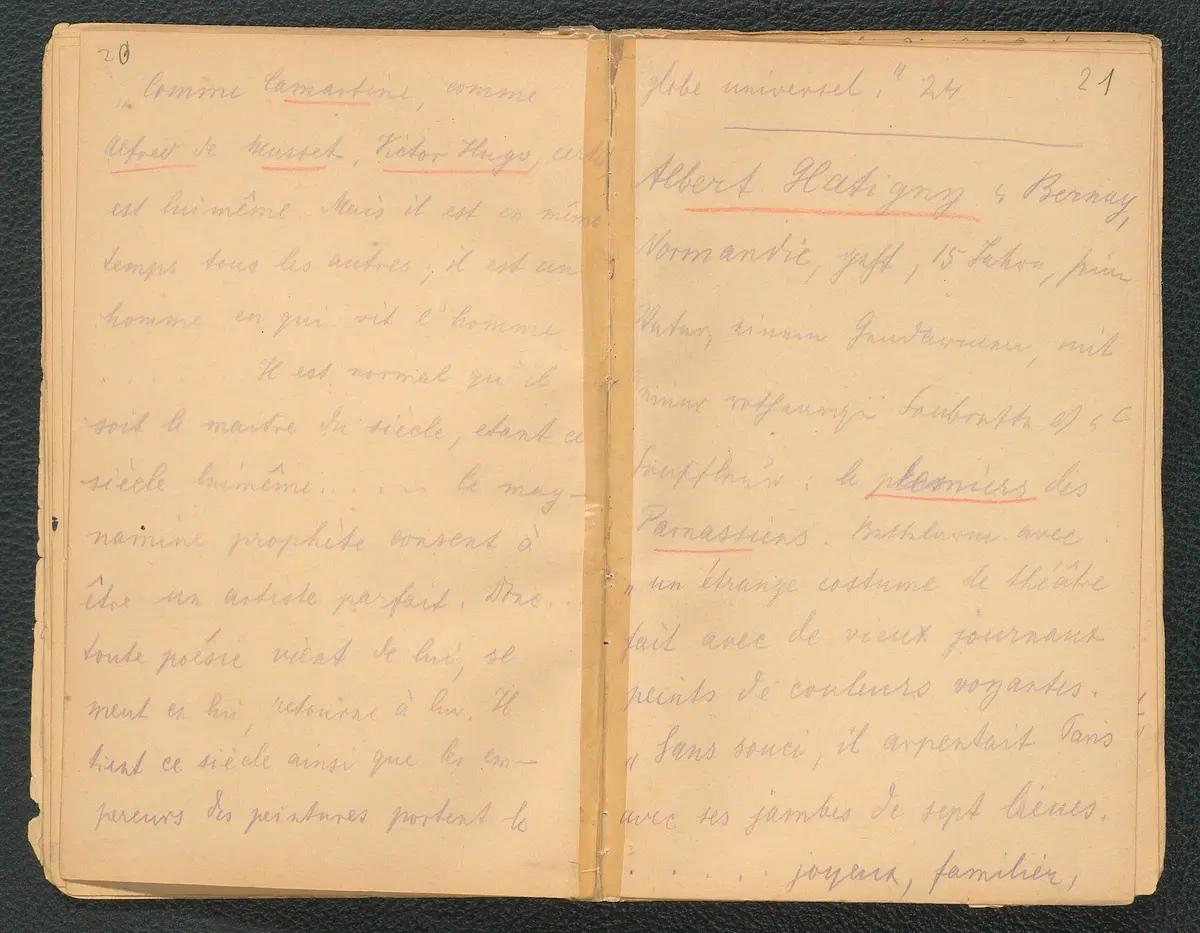 20
„Comme Lamartine, comme
Alfred de Musset, Victor Hugo, certes,
est luimême. Mais il est en même
temps tous les autres; il est un
homme en qui vit l'homme
. . . . . Il est normal qu'il
soit le maitre du siècle, etant ce
siècle luimême. . . . le mag-
namine prophète consent à
être un artiste parfait. Donc. .
toute poésie vient de lui, se
meut en lui, retourne à lui. Il
tient ce siècle ainsi que les em-
pereurs des peintures portent le
21
globe universel." 24
Albert Glatigny Bernay,
Normandie, 15 Jahre,
Vater, einem Gendarmen, mit
einer
le premiers des
Parnassiens. avec
„un étrange costume de théâtre
fait avec de vieux journaux
peints de couleurs voyantes.
„Sans souci, il arpentait Paris
avec ses jambes de sept lieues.
. . . . . joyeux, familier,